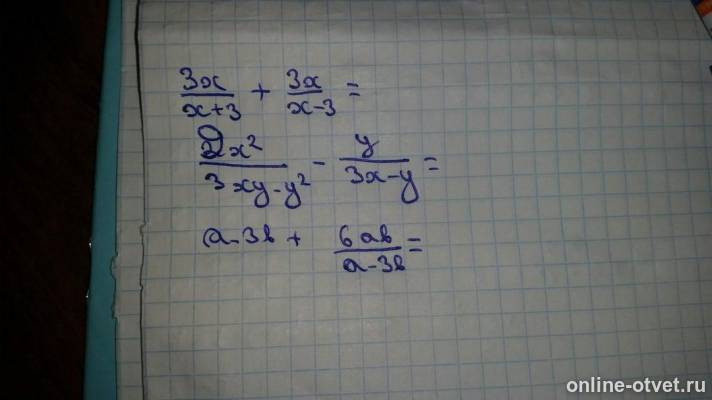 3x/(x+3) + 3x/(x-3) =
2x²/(3xy-y²) - y/(3x-y) =
a-3b + 6ab/(a-3b) =
online-otvet.ru